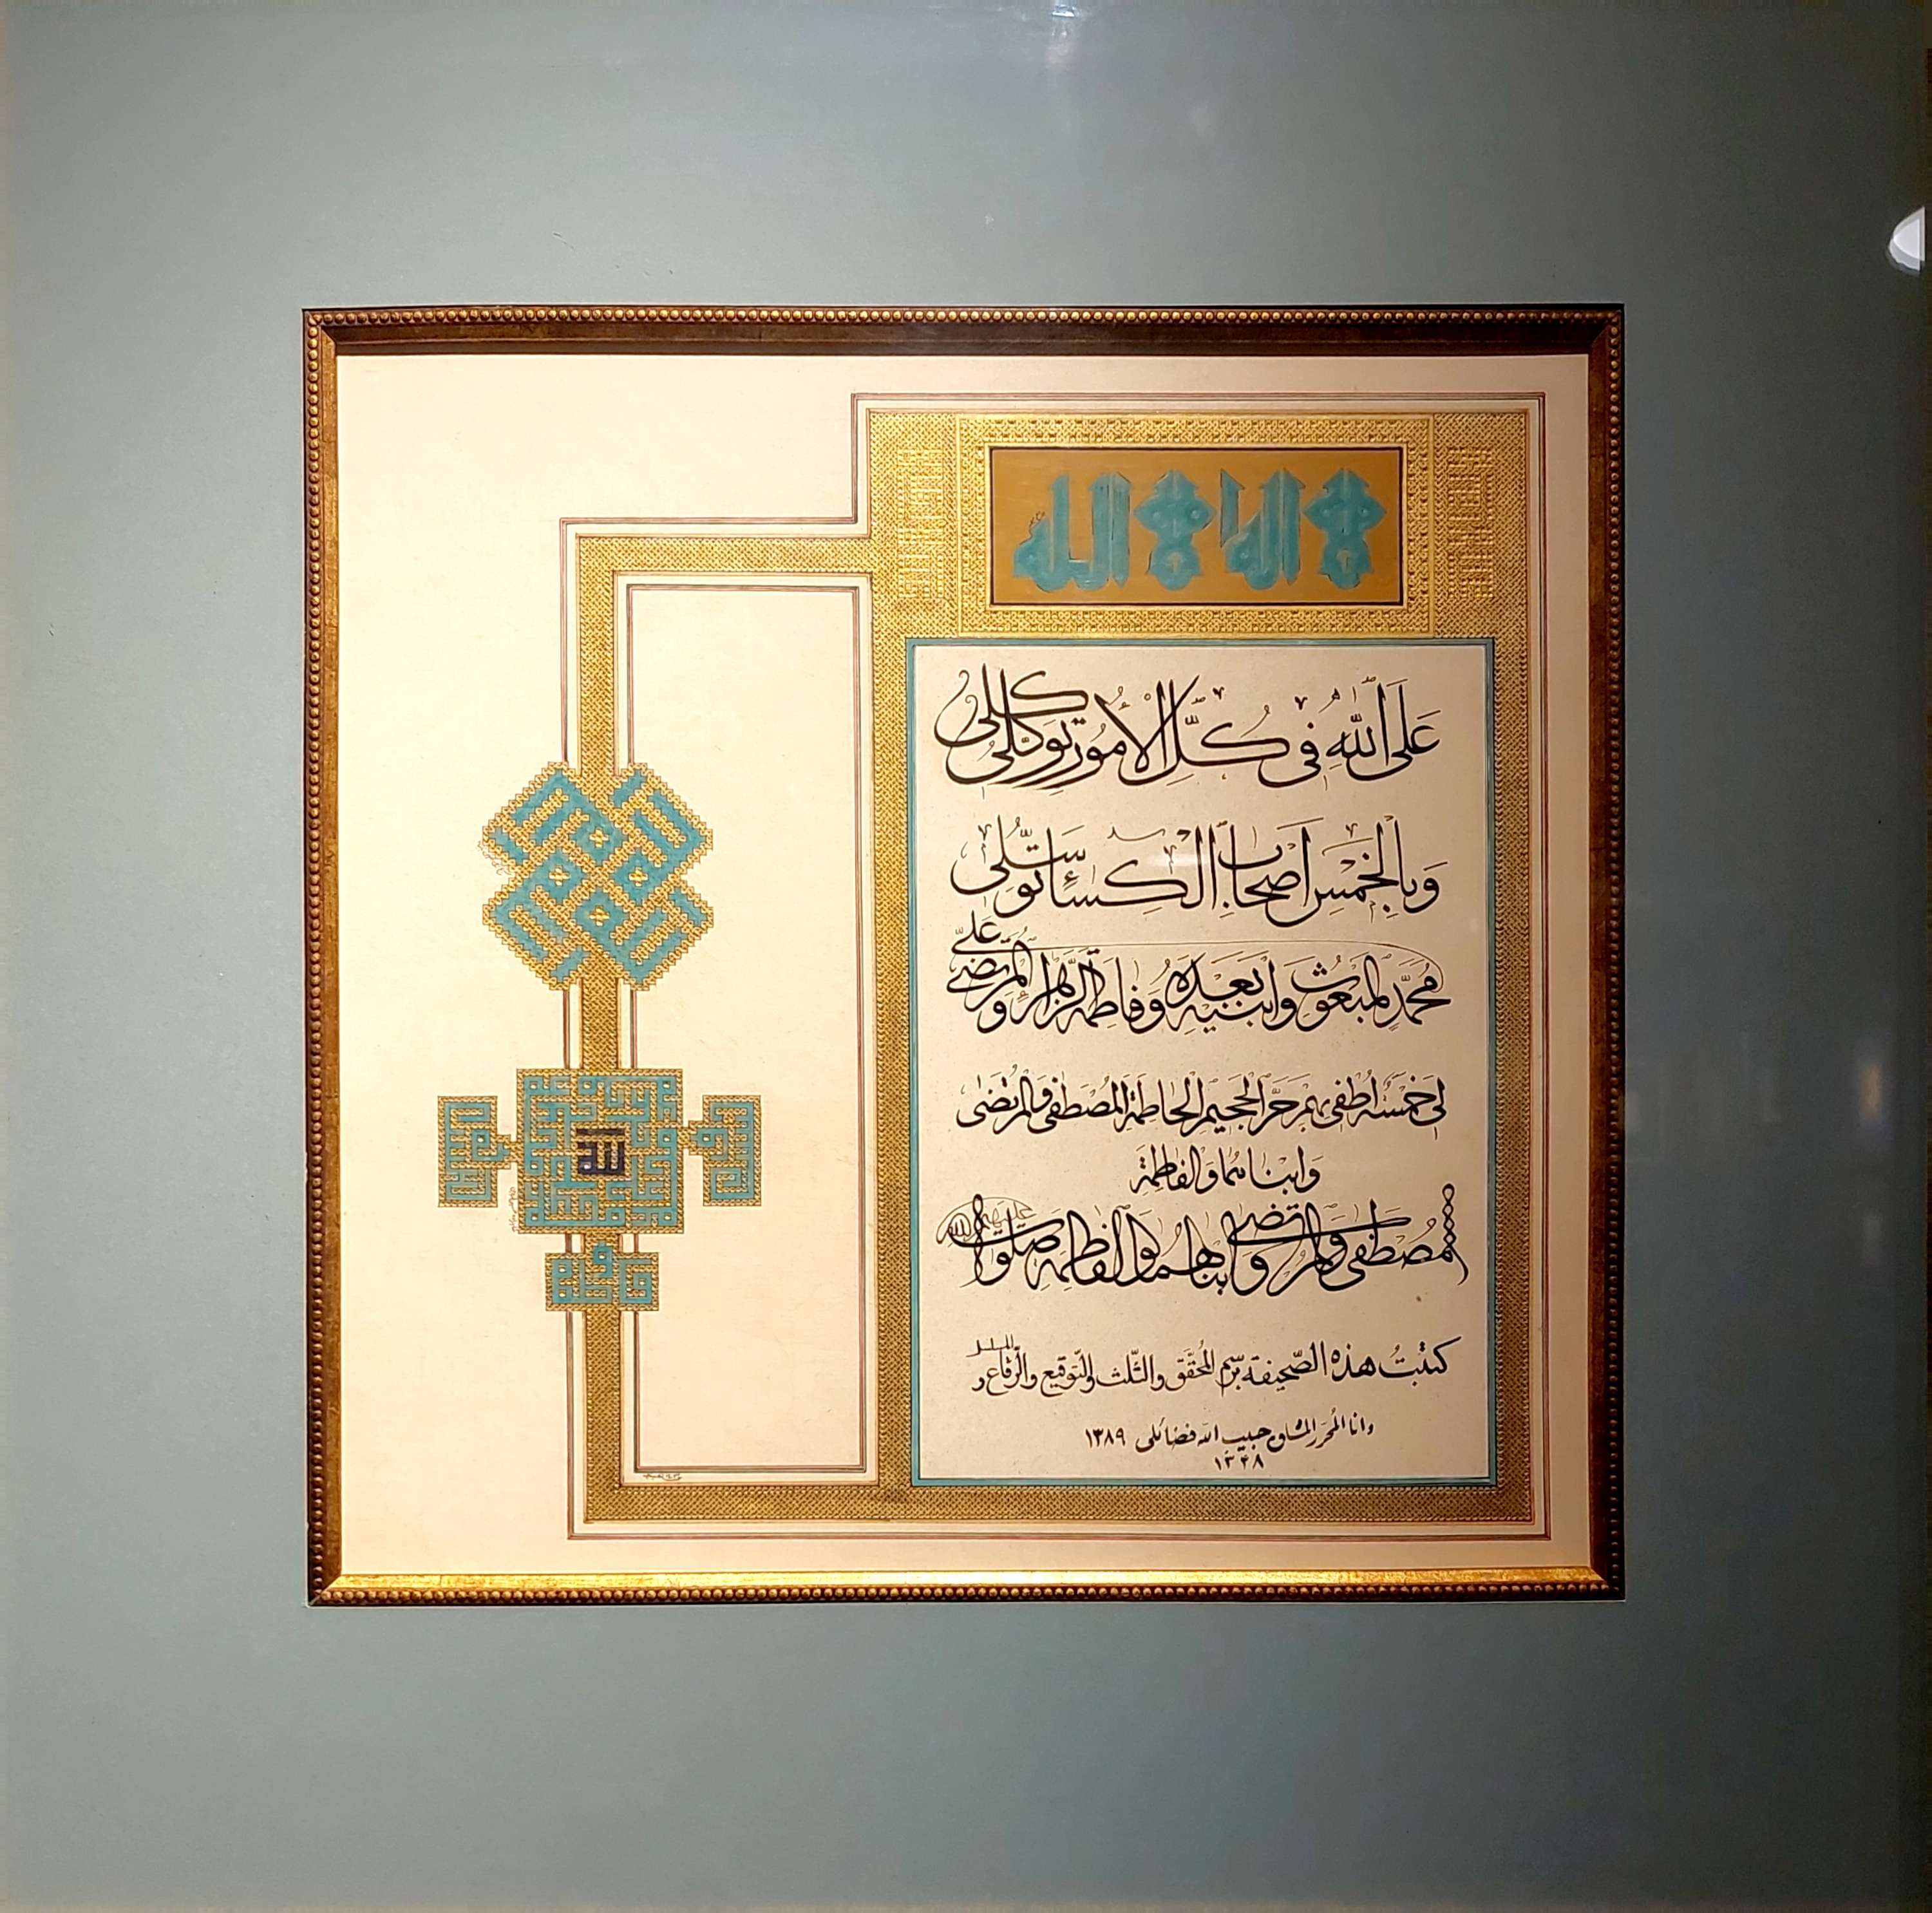 لا اله الا الله
عَلَى اللّٰهِ فى كُلِّ الْأُمُورِ تَوَكُّلى
وَبِالْخَمْسِ اَصحابِ الْكِساءِ تَوَسُّلى
مُحَمَّدٍ المَبعُوثِ وَابنَيهِ بَعدَهُ وَفاطِمَةَ الزَّهراءِ وَالمُرتَضى عَلىّ
لى خَمْسَةٌ اُطْفى بِهِم حَرَّ الْجَحيمِ الْحاطِمَة اَلْمُصْطَفى وَالْمُرْتَضى
وَابْناهُما وَالفاطِمَة
المُصْطَفى وَالْمُرتَضى وَابناهُما وَالفاطِمَة صَلَواتُ اللّٰه عَلَيهِم
كتبتُ هذه الصّحيفة برسم المُحقّق والثّلث والتّوقيع والرّقاع و
وانا المُحرّر حبيب الله فضائلى ١٣٨٩
١٣٤٨
الله